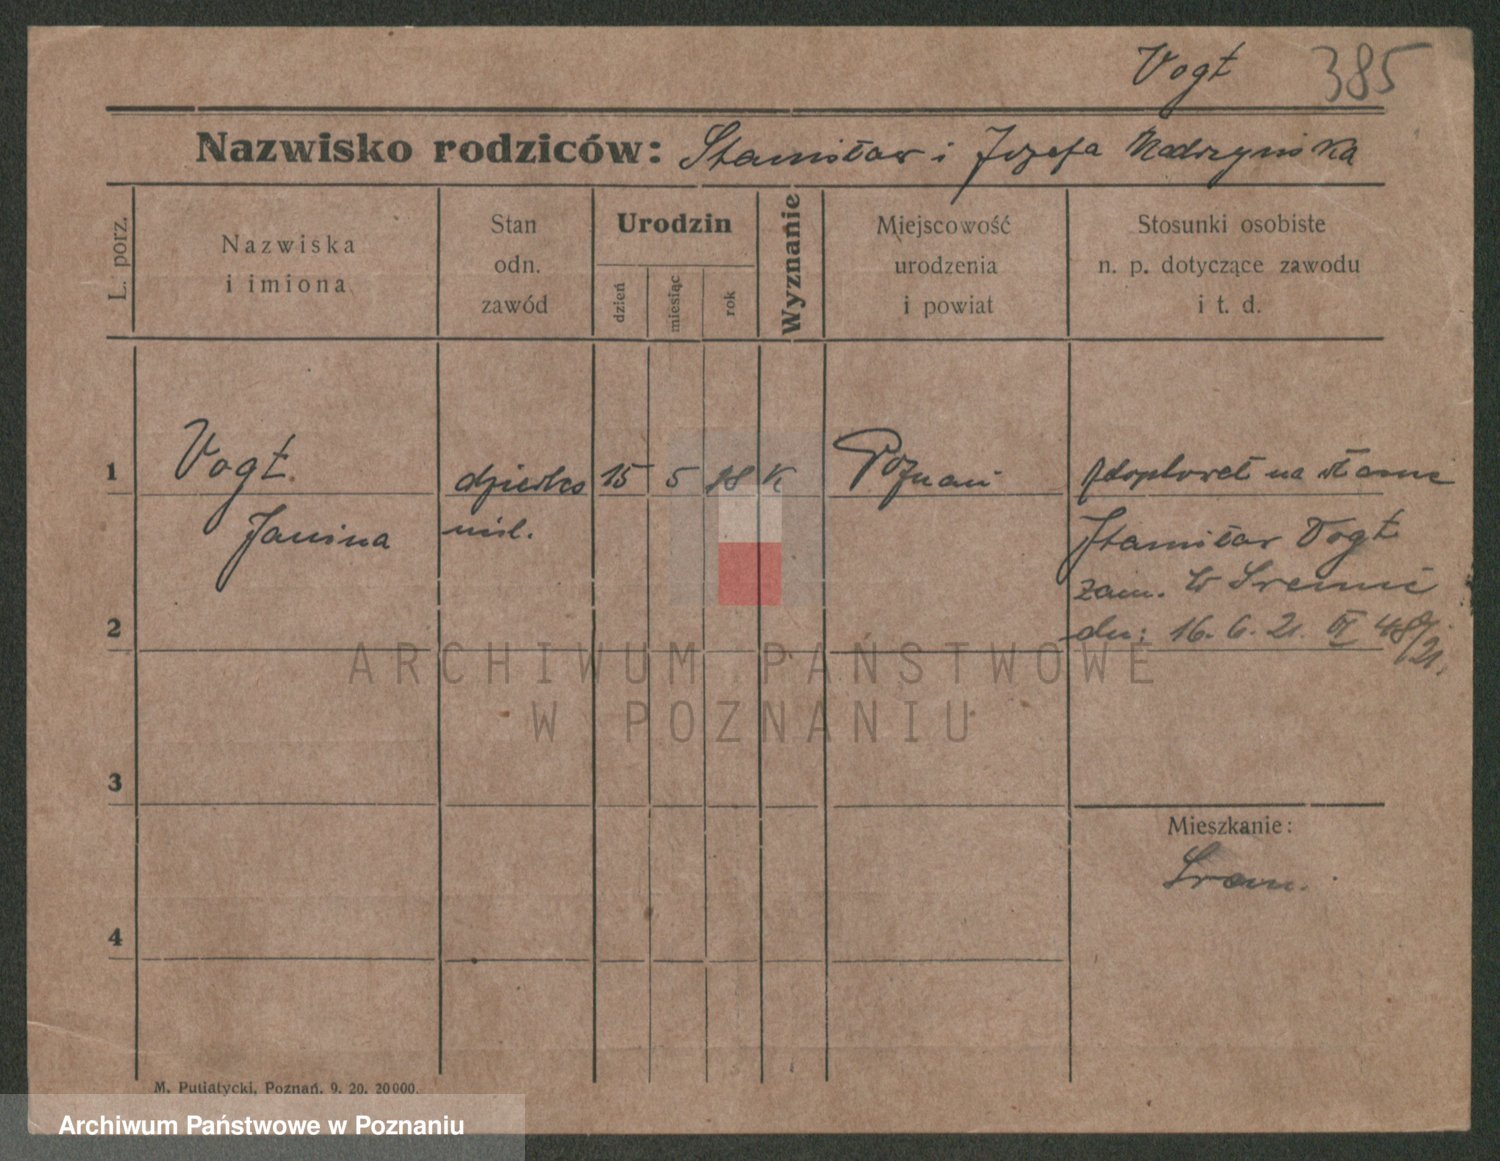 Vogt 385
Nazwisko rodziców: Stanisław i Józefa
L. porz.
Nazwiska
i imiona
Stan
odn.
zawód
Urodzin
dzień
miesiąc
rok
Wyznanie
Miejscowość
urodzenia
i powiat
Stosunki osobiste
n. p. dotyczące zawodu
i t. d.
1 Vogt dziecko 15 5 18 K Poznań
Janina
Stanisław Vogt
zam. w Śremie
dn: 16. 6. 21.
2
3
Mieszkanie:
Śrem.
4
M. Putiatycki, Poznań. 9. 20. 20000.
ARCHIWUM PAŃSTWOWE
W POZNANIU
Archiwum Państwowe w Poznaniu